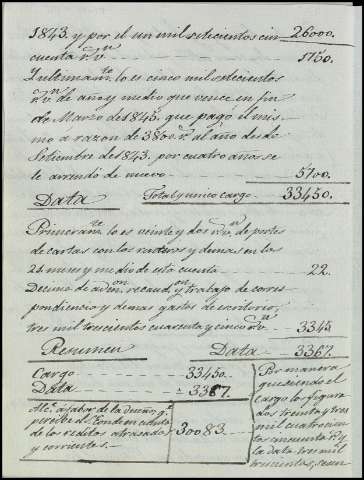 1843. y por el un mil setecientos cin 26000.
cuenta r.s v.n 1750.
Ynteriman.te lo es cinco mil setecientos
r.s v.n de año y medio que vence en fin
de Marzo de 1845. que pagó el mis
mo a razon de 3800. r.s al año desde
Setiembre del 1843. por cuatro años se
le arrendó de nuevo 5700.
Data Total y unico cargo. 33450.
Primeram.te lo es veinte y dos r.s v.n de portes
de cartas con los rateros y demas en los
24 meses y medio de esta cuenta 22.
Decimo de adm.on recaud.on y trabajo de corres
pondiencia y demas gastos de escritorio,
tres mil trescientos cuarenta y cinco r.s v.n 3345
Resumen Data 3367.
Cargo 33450.
Data 3367.
Alc.e a favor de la
percibe el
de los reditos atrasados
y corrientes. 30083.
Por manera
que siendo el
cargo los figura
dos treinta y tres
mil cuatrocien
tos cincuenta r.s y
la data tres mil
trescientos, sesen